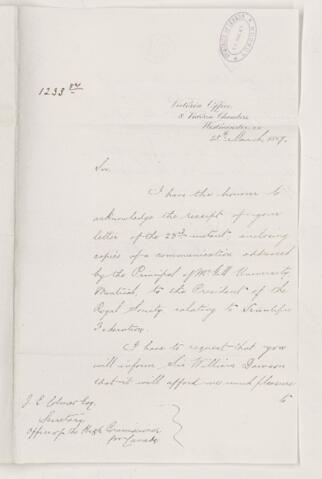 1233
Victoria Office,
8 Victoria Chambers
Westminster
March, 1887.
Sir,
I have the honour to
acknowledge the receipt of your
letter of the 23rd instant, enclosing
copies of a communication addressed
by the Principal of McGill University,
Montreal, to the President of the
Royal Society, relating to Scientific
Federation.
I have to request that you
will inform Sir William Dawson
that it will afford me much pleasure
to
J. G. Colmer Esq
Secretary
Office of the High Commissioner
for Canada